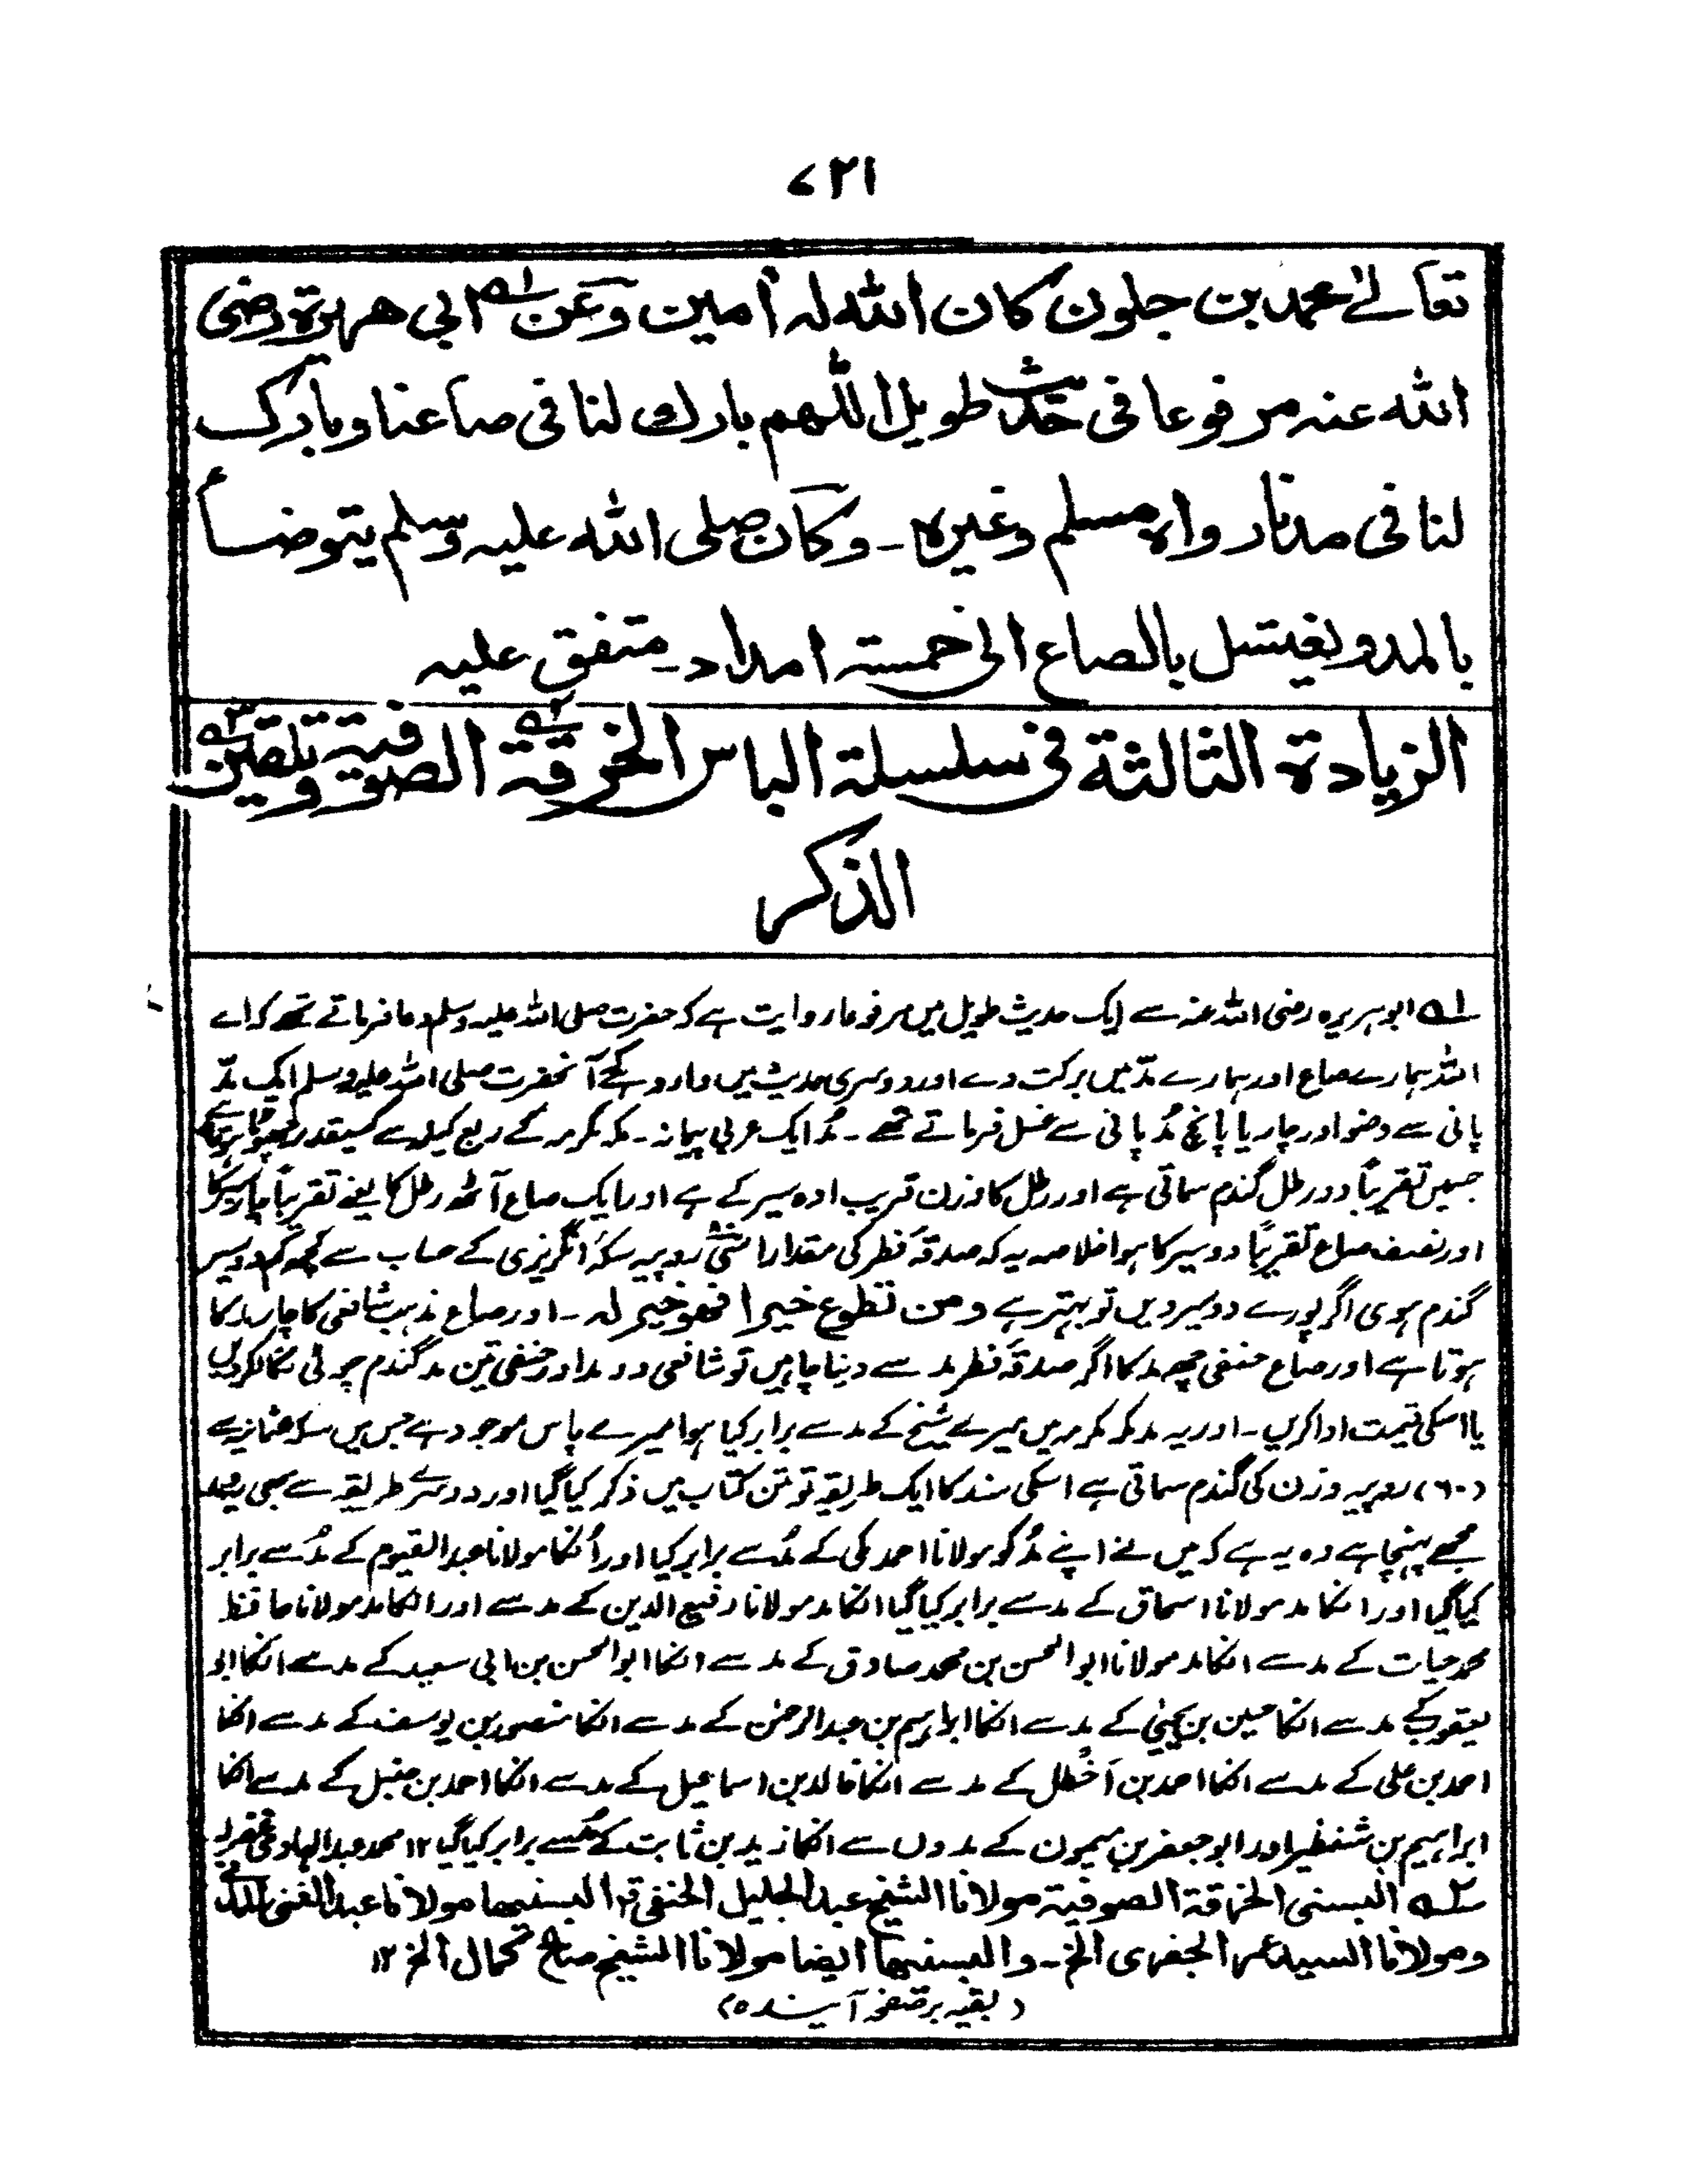 ۷۲۱
تعالےٰ محمد بن جلون کان اللہ لہ اٰمین وعن ۱؎ ابی ھریرۃ رضی
اللہ عنہ مرفوعا فی حدیث طویل اللّٰھم بارک لنا فی صاعنا وبارک
لنا فی مدنا رواہ مسلم وغیرہ ۔ وکان صلی اللہ علیہ وسلم یتوضأ
بالمد ویغیتسل بالصاع الی خمستہ امداد ۔ متفق علیہ
الزیادۃ الثالثۃ فی سلسلۃ الباس الخرقۃ ۲؎ الصوفیۃ وتلقین ۳؎
الذکر
۱؎ ابوہریرہ رضی اللہ عنہ سے ایک حدیث طویل میں مرفوعا روایت ہے کہ حضرت صلی اللہ علیہ وسلم دعا فرماتے تھے کہ اے
اللہ ہمارے صاع اور ہمارے مدّ میں برکت دے اور دوسری حدیث میں وارد ہے کہ آنحضرت صلی اللہ علیہ وسلم ایک مدّ
پانی سے وضو اور چار یا پانچ مُد پانی سے غسل فرماتے تھے ۔ مُد ایک عربی پیمانہ ۔ مکہ مکرمہ کے ربع کیلہ سے کسیقدر چھوٹا ہوتا ہے
جسمیں تقریباً دو رطل گندم سماتی ہے اور رطل کا وزن قریب ادہ سیر کے ہے اور ایک صاع آٹھ رطل کا یعنے تقریباً چار سیر کا
اور نصف صاع تقریباً دو سیر کا ہوا خلاصہ یہ کہ صدقۂ فطر کی مقدار اسّی ۸۰ روپیہ سکۂ انگریزی کے حساب سے کچھ کم دو سیر
گندم ہوی اگر پورے دو سیر دیں تو بہتر ہے ومن تطوع خیرا فھو خیر لہ ۔ اور صاع مذہب شافعی کا چار مد کا
ہوتا ہے اور صاع حنفی چھ مد کا اگر صدقۂ فطر مد سے دینا چاہیں تو شافعی دو مد اور حنفی تین مد گندم چوٹی نکالکر دیں
یا اسکی قیمت ادا کریں ۔ اور یہ مد مکہ مکرمہ میں میرے شیخ کے مد سے برابر کیا ہوا میرے پاس موجود ہے جس میں سکہ عثمانیہ سے
(۶۰) روپیہ وزن کی گندم سماتی ہے اسکی سند کا ایک طریقہ تو متن کتاب میں ذکر کیا گیا اور دوسرے طریقہ سے بھی یہ مد
مجھے پہنچا ہے وہ یہ ہے کہ میں نے اپنے مُد کو مولانا احمد مکی کے مُد سے برابر کیا اور اُنکا مولانا عبد القیوم کے مُد سے برابر
کیا گیا اور انکا مد مولانا اسحاق کے مد سے برابر کیا گیا انکا مد مولانا رفیع الدین کے مد سے اور انکا مد مولانا حافظ
محمد حیات کے مد سے انکا مد مولانا ابو الحسن بن محمد صادق کے مد سے انکا ابو الحسن بن ابی سعید کے مد سے انکا ابو
یعقوب کے مد سے انکا حسین بن یحییٰ کے مد سے انکا ابراہیم بن عبد الرحمٰن کے مد سے انکا منصور بن یوسف کے مد سے انکا
احمد بن علی کے مد سے انکا احمد بن اَخطل کے مد سے انکا خالد بن اسماعیل کے مد سے انکا احمد بن حنبل کے مد سے انکا
ابراہیم بن شنظیر اور ابو جعفر بن میمون کے مدوں سے انکا زید بن ثابت کے مُد سے برابر کیا گیا ۱۲ محمد عبد الہادی غفرلہ
۲؎ البسنی الخرقۃ الصوفیۃ مولانا الشیخ عبد الجلیل الحنفی البسنیھا مولانا عبد الغنی
ومولانا السید عمر الجفری الخ ۔ والبسنیھا ایضا مولانا الشیخ صالح کمال الخ ۱۲
(بقیہ بر صفحہ آیندہ)